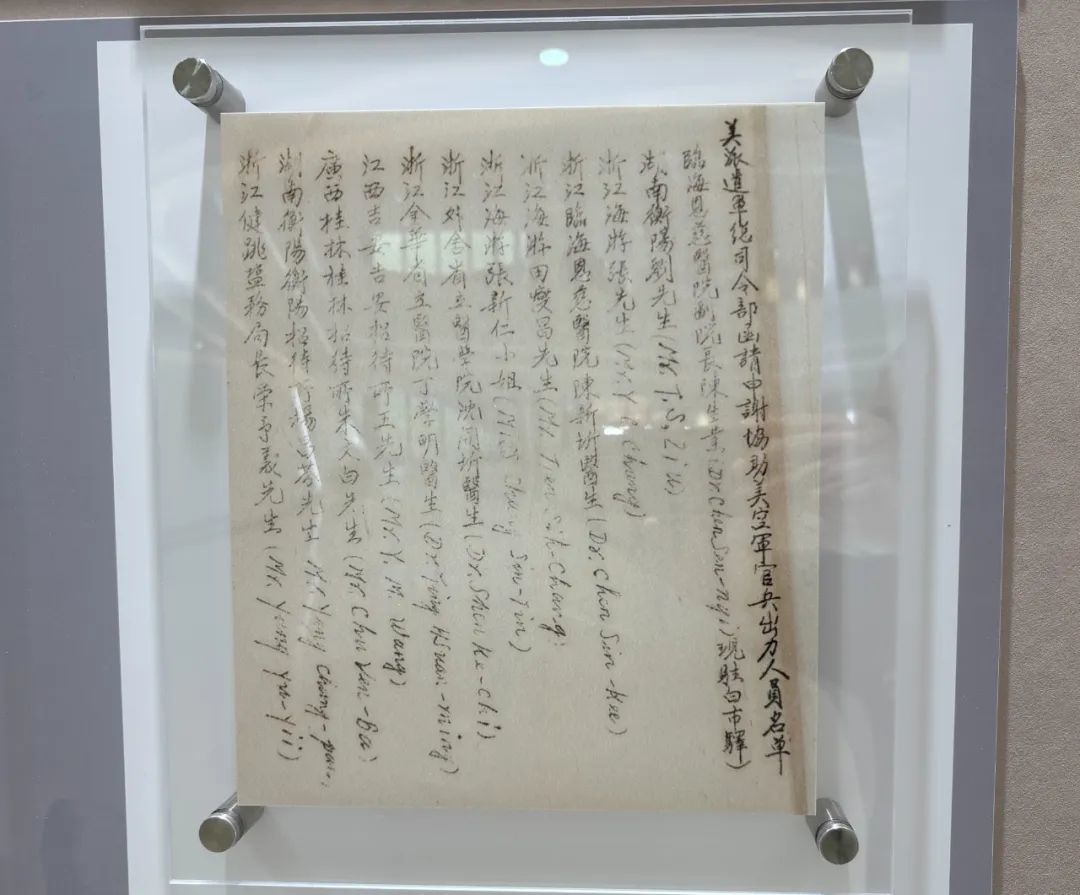 美派遣軍總司令部函請申謝協助美空軍官兵出力人員名單
臨海恩慈醫院副院長陳生業(Dr Chen Sen-ngi)現駐白市驛)
湖南衡陽劉先生(Mr. T. S. Liu)
浙江海游張先生(Mr. Y C Chang)
浙江臨海恩慈醫院陳新圻醫生(Dr. Chen Sin-Kee)
浙江海游田變昌先生(Mr. Tien Chang
浙江海游張新仁小姐(Miss Chang Sin-Jin)
浙江省立醫學院沈醫生(Dr. Shen Ke-Chi)
浙江金華省立醫院丁學明醫生(Dr. Ting Hsuan-ming)
江西吉安吉安招待所王先生(Mr. Y. M. Wang)
廣西桂林桂林招待所朱文白先生(Mr. Chu Ven-Ba)
湖南衡陽衡陽招待所楊昌先生 Mr Yang Chang-
浙江健跳鹽務局長先生(Mr. Yung Yu-Yii)